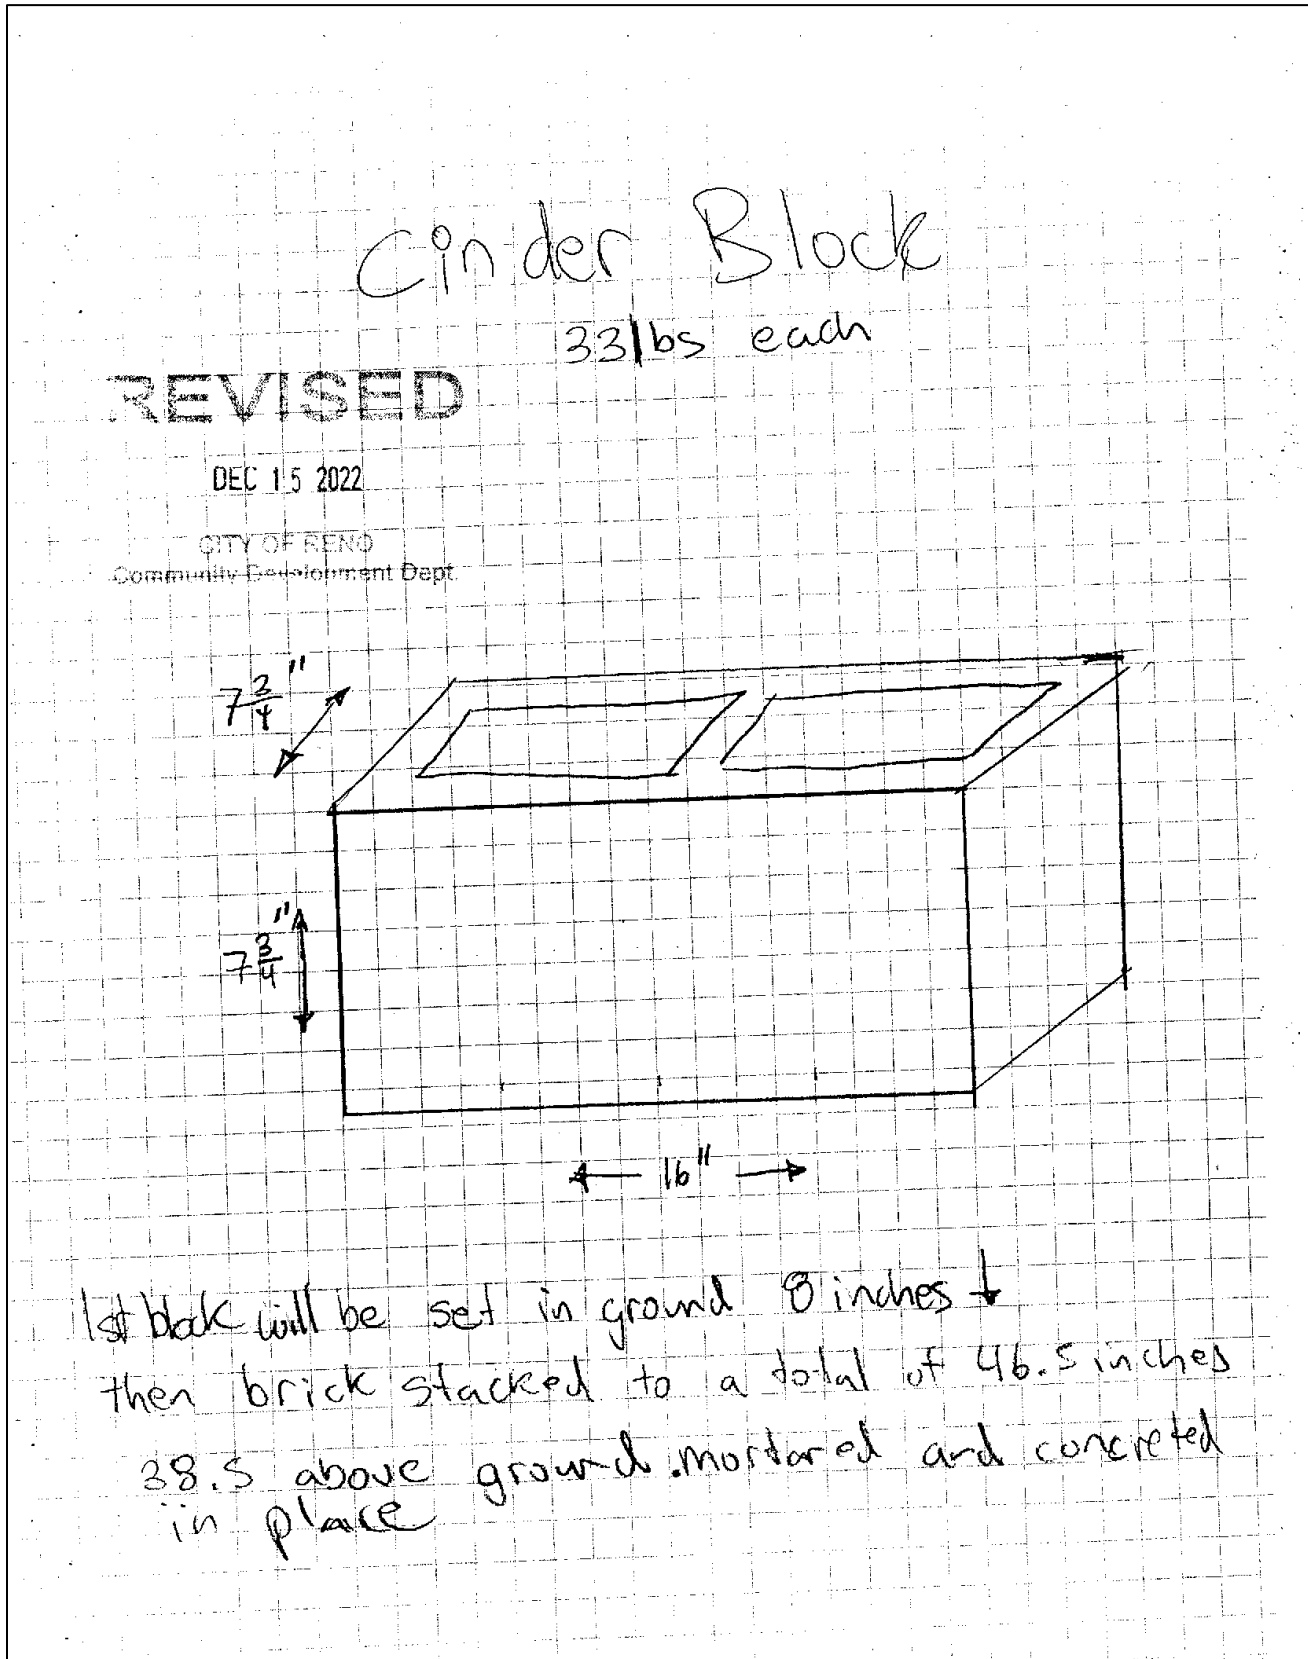 Cinder Block
33lbs each
REVISED
DEC 15 2022
CITY OF RENO
Community Development Dept.
7 3/4"
7 3/4"
16"
1st block will be set in ground 8 inches ↓
then brick stacked to a total of 46.5 inches
38.5 above ground. mortared and concreted
in place